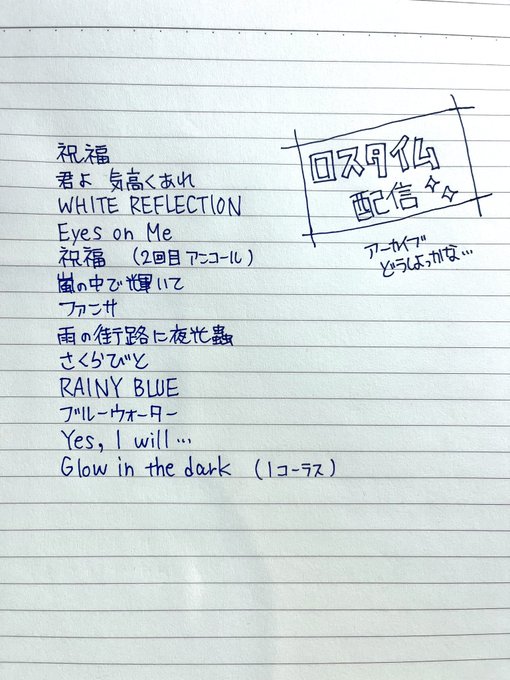 祝福
君よ 気高くあれ
WHITE REFLECTION
Eyes on Me
祝福 (2回目アンコール)
嵐の中で輝いて
ファンサ
雨の街路に夜光蟲
さくらびと
RAINY BLUE
ブルーウォーター
Yes, I will…
Glow in the dark (1コーラス)
ロスタイム
配信
アーカイブ
どうしよっかな…